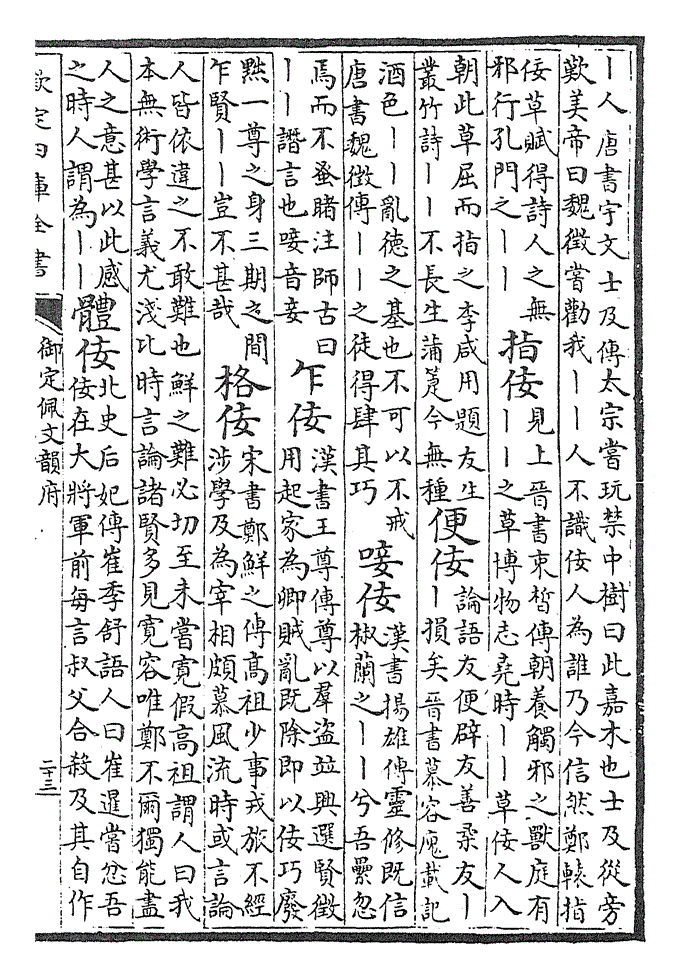 丨人唐書宇文士及傳太宗嘗玩禁中樹曰此嘉木也士及從旁
歎美帝曰魏徵嘗勸我丨丨人不識佞人為誰乃今信然鄭轅指
佞草賦得詩人之無
邪行孔門之丨丨
指佞
見上晉書束晳傳朝養觸邪之獸庭有
丨丨之草博物志堯時丨丨草佞人入
朝此草屈而指之李咸用題友生
叢竹詩丨丨不長生蒲箑今無種
便佞
論語友便辟友善柔友丨
丨損矣晉書慕容廆載記
酒色丨丨亂德之基也不可以不戒
唐書魏徵傳丨丨之徒得肆其巧
唼佞
漢書揚雄傳靈修既信
椒蘭之丨丨兮吾纍忽
焉而不蚤睹注師古曰
丨丨譖言也唼音妾
乍佞
漢書王尊傳尊以羣盗並興選賢徵
用起家為卿賊亂既除即以佞巧廢
黜一尊之身三期之間
乍賢丨丨豈不甚哉
格佞
宋書鄭鮮之傳高祖少事戎旅不經
涉學及為宰相頗慕風流時或言論
人皆依違之不敢難也鮮之難必切至未嘗寛假高祖謂人曰我
本無術學言義尤淺比時言論諸賢多見寛容唯鄭不爾獨能盡
人之意甚以此感
之時人謂為丨丨
體佞
北史后妃傳崔季舒語人曰崔暹嘗忿吾
佞在大將軍前每言叔父合殺及其自作
欽定四庫全書
御定佩文韻府
二十三